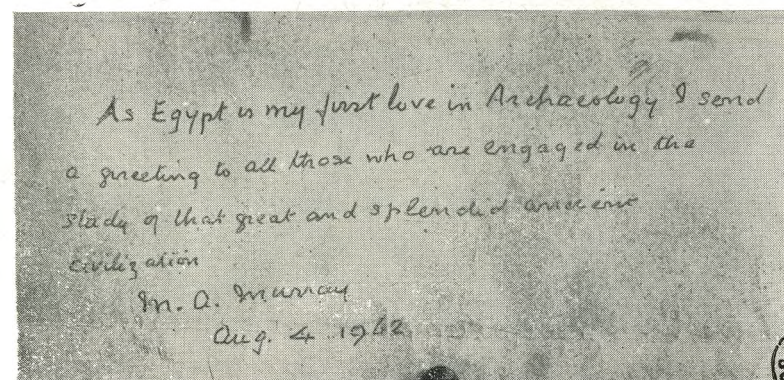 As Egypt is my first love in Archaeology I send
a greeting to all those who are engaged in the
study of that great and splendid ancient
civilization
M. A. Murray
Aug. 4 1962